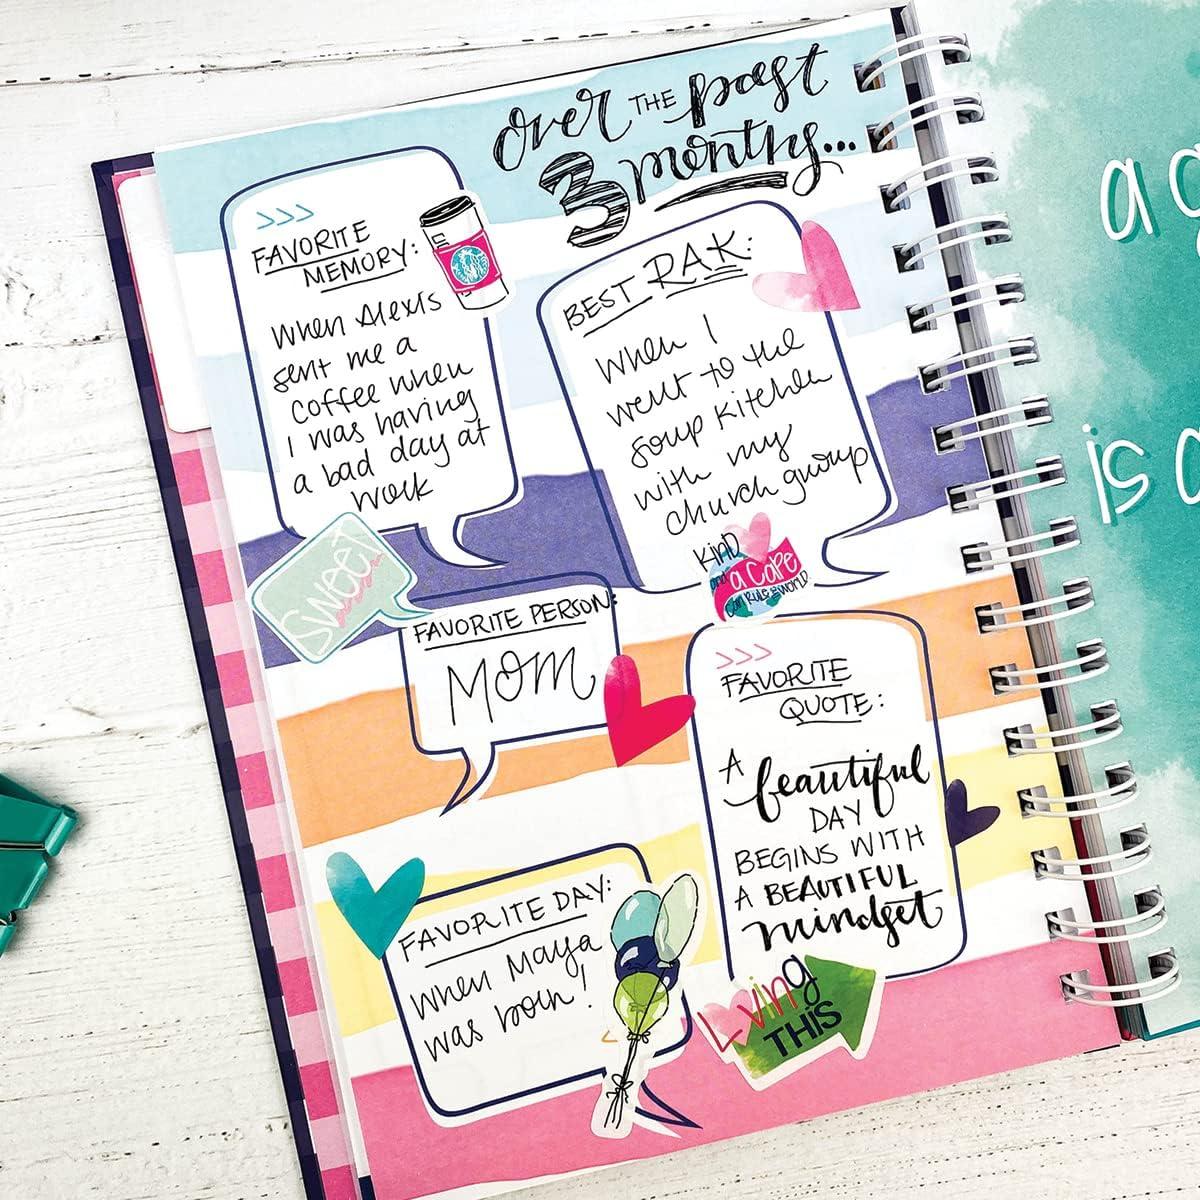 over THE past
3 months...
>>>
FAVORITE
MEMORY:
When Alexis
sent me a
coffee when
I was having
a bad day at
work
BEST RAK:
When I
went to the
soup kitchen
with my
church group
SWEET
KIND
and a CAPE
can RULE the WORLD
FAVORITE PERSON:
MOM
>>>
FAVORITE
QUOTE:
A beautiful
DAY
BEGINS WITH
A BEAUTIFUL
mindset
FAVORITE DAY:
When Maya
was born!
Loving
THIS
a g
is a